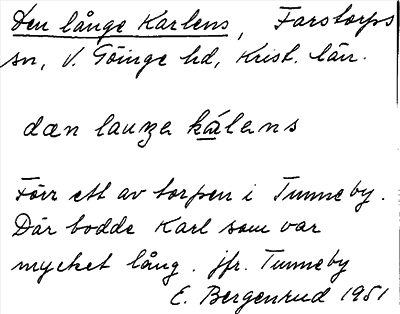 Den långe Karlens, Farstorps
sn, V. Göinge hd, Krist. län.
dæn lauŋa kálens
Förr ett av torpen i Tunneby.
Där bodde Karl som var
mycket lång. jfr. Tunneby
E. Bergenrud 1951